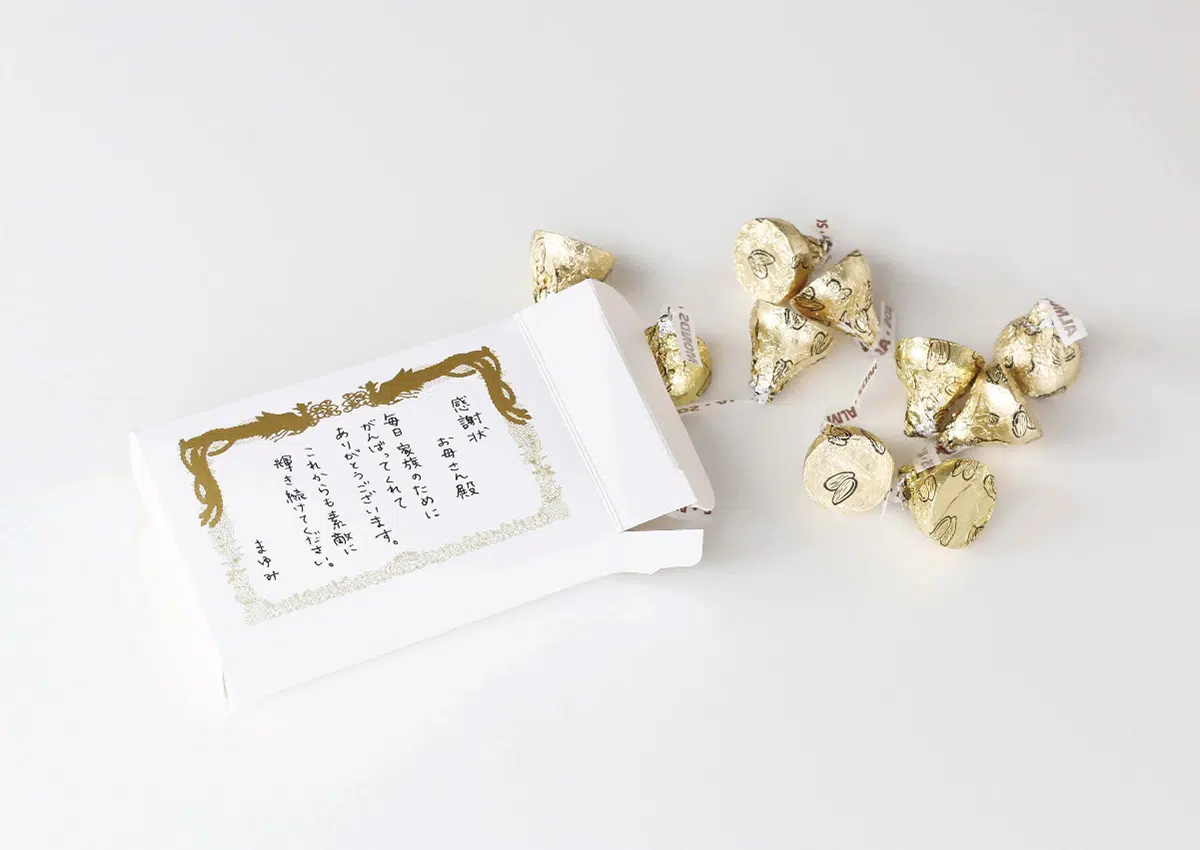 感謝状
お母さん殿
毎日家族のために
がんばってくれて
ありがとうございます。
これからも素敵に
輝き続けてください。
まゆみ